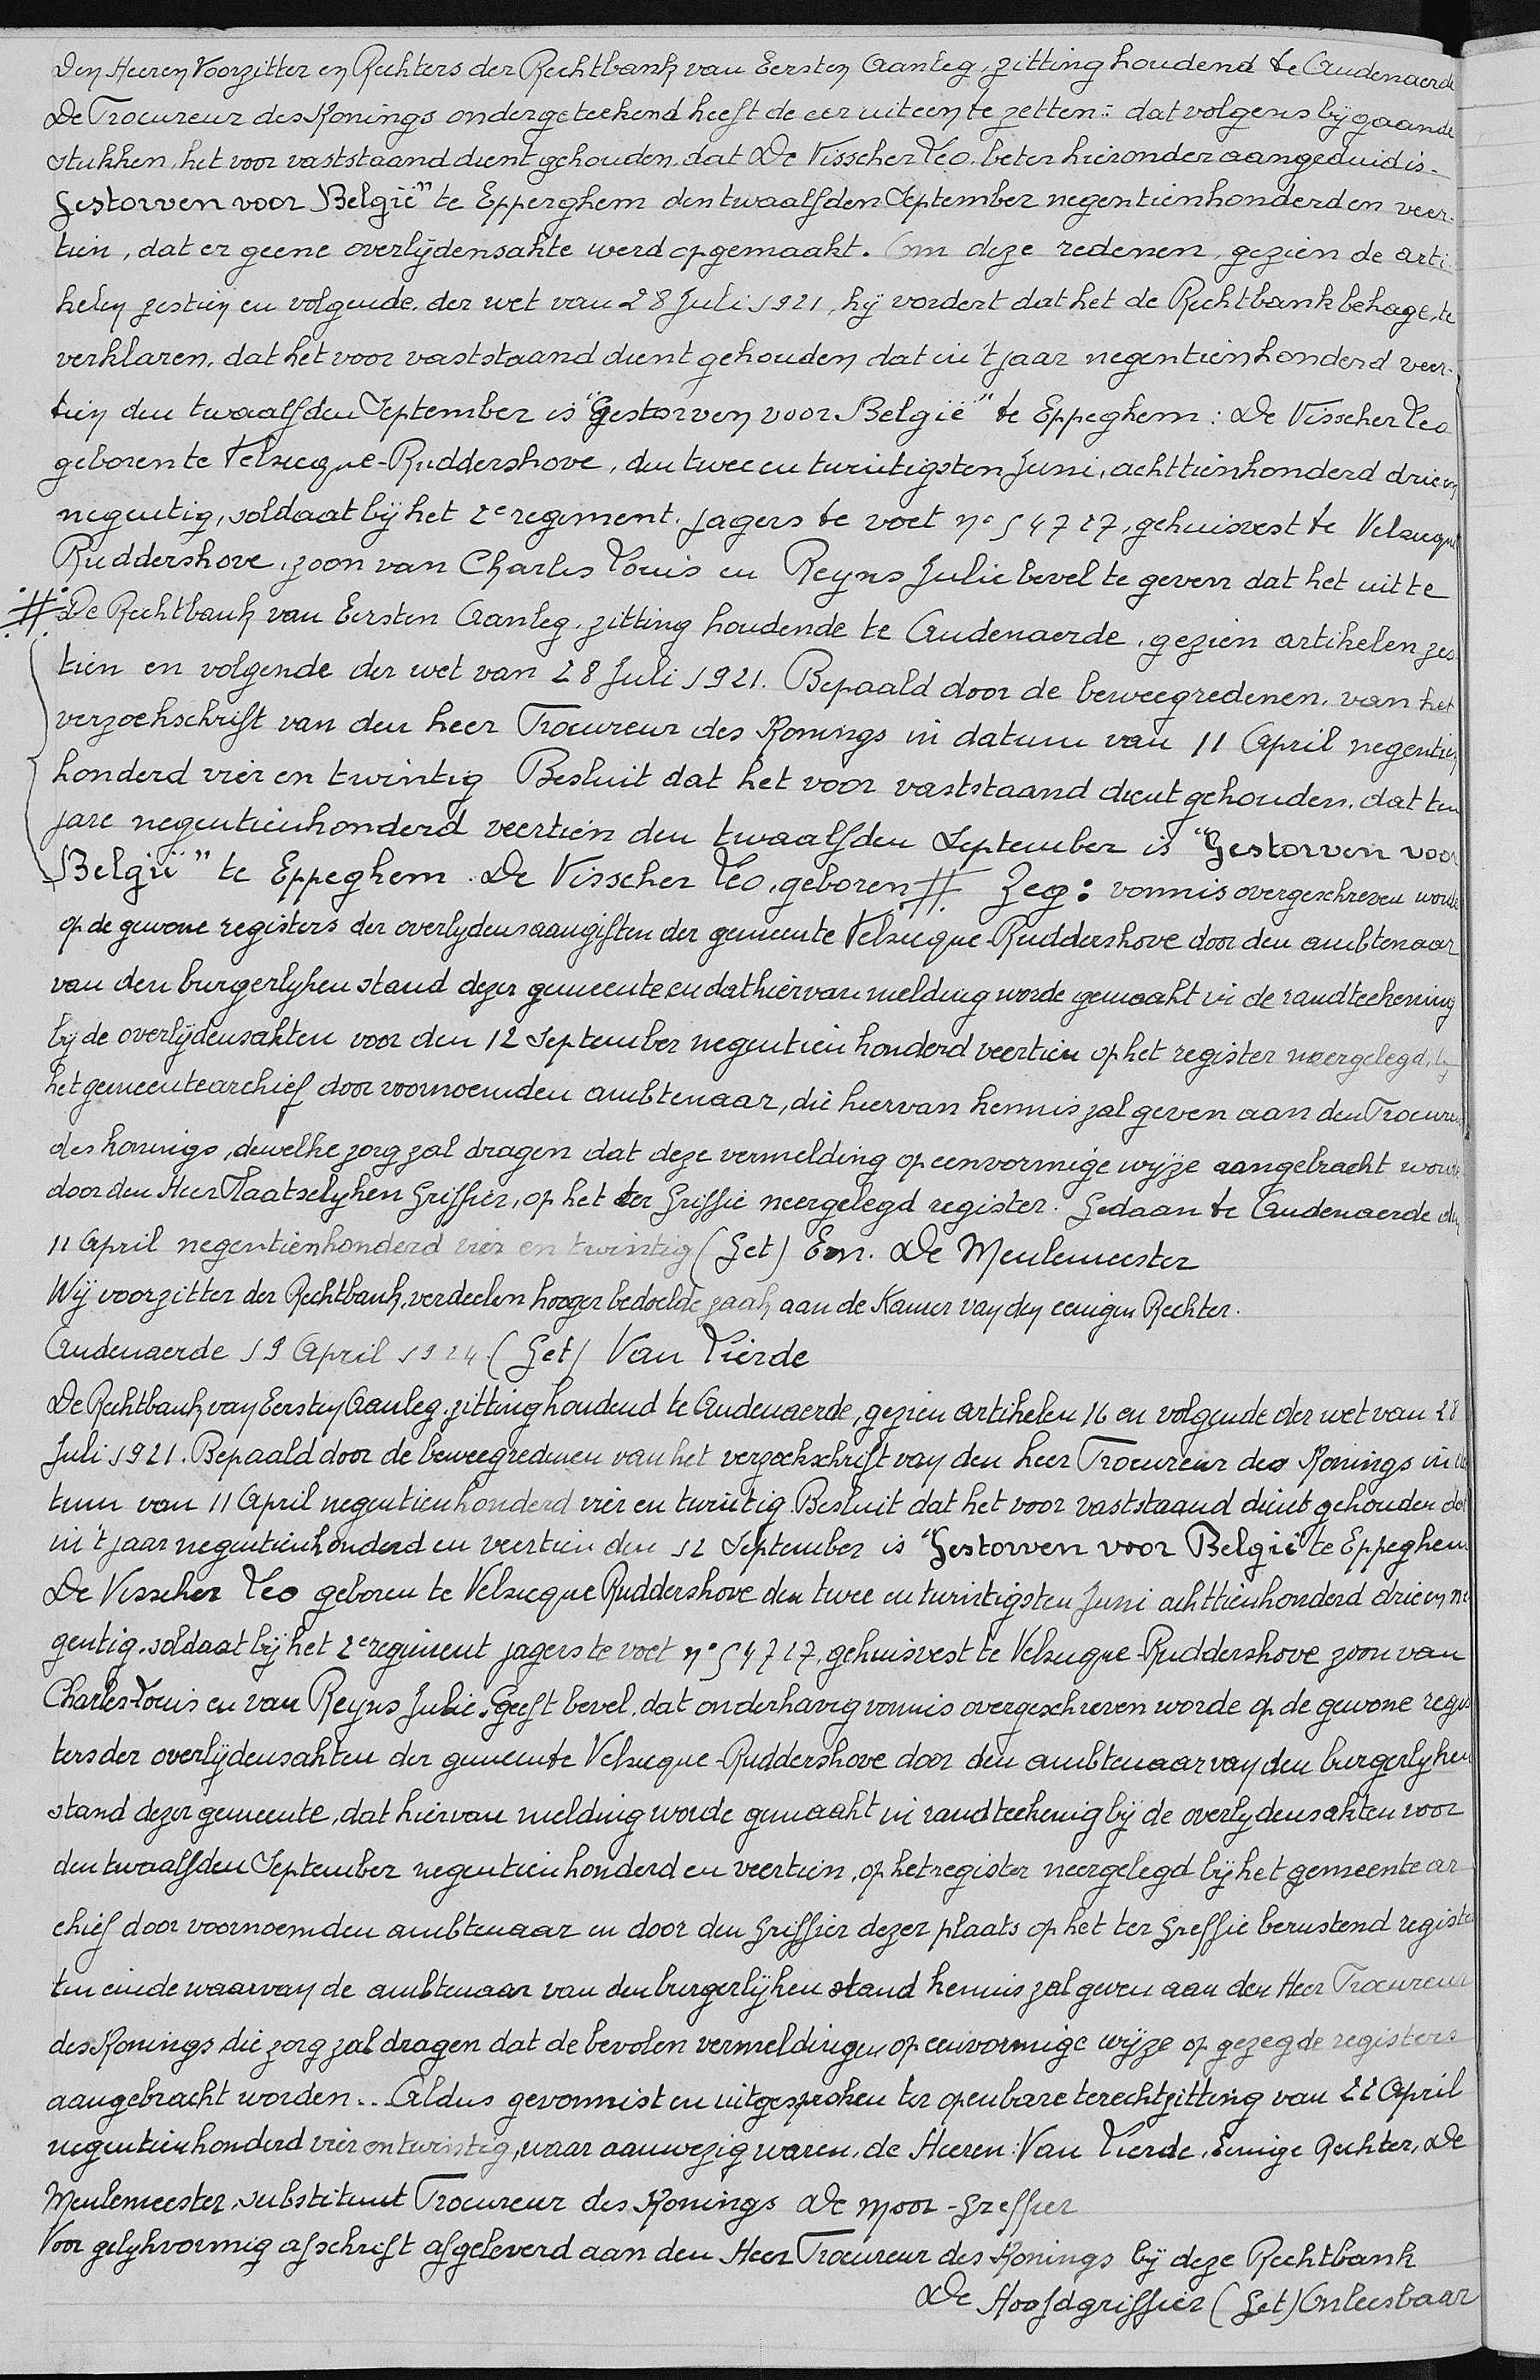 Den Heeren Voorzitter en Rechters der Rechtbank van Eersten Aanleg, zitting houdend te Audenaerde
De Procureur des Konings ondergeteekend heeft de eer uiteen te zetten: dat volgens bijgaande
stukken, het voor vaststaand dient gehouden, dat De Visscher Leo, beter hieronder aangeduid is.
Gestorven voor België" te Epperghem den twaalfden September negentienhonderd en veer-
tien, dat er geene overlijdensakte werd opgemaakt. Om deze redenen, gezien de arti-
kelen zestien en volgende, der wet van 28 Juli 1921, hij vordert dat het de Rechtbank behage, te
verklaren, dat het voor vaststaand dient gehouden dat in 't jaar negentienhonderd veer-
tien den twaalfden September is "Gestorven voor België" te Eppeghem: De Visscher Leo
geboren te Velsicque-Ruddershove, den twee en twintigsten Juni, achttienhonderd drie en
negentig, soldaat bij het 2e regiment jagers te voet no 54727, gehuisvest te Velsicque
Ruddershove, zoon van Charles Louis en Reyns Julie bevel te geven dat het uit te
# De Rechtbank van Eersten Aanleg, zitting houdende te Audenaerde, gezien artikelen zes-
tien en volgende der wet van 28 Juli 1921. Bepaald door de beweegredenen, van het
verzoekschrift van den heer Procureur des Konings in datum van 11 April negentien
honderd vier en twintig Besluit dat het voor vaststaand dient gehouden, dat ten
jare negentienhonderd veertien den twaalfden September is "Gestorven voor
België" te Eppeghem. De Visscher Leo, geboren # Zeg: vonnis overgeschreven worde
op de gewone registers der overlydensaangiften der gemeente Velsicque-Ruddershove door den ambtenaar
van den burgerlyken stand dezer gemeente en dat hiervan melding worde gemaakt in de randteekening
bij de overlijdensakten voor den 12 September negentien honderd veertien op het register neergelegd, bij
het gemeentearchief door voornoemden ambtenaar, die hiervan kennis zal geven aan den Procureur
des konings, dewelke zorg zal dragen dat deze vermelding op eenvormige wyze aangebracht worde
door den Heer Plaatselyken Griffier, op het ter Griffie neergelegd register. Gedaan te Audenaerde den
11 April negentienhonderd vier en twintig (Get) Em. De Meulemeester
Wij voorzitter der Rechtbank, verdeelen hooger bedoelde zaak, aan de Kamer van den eenigen Rechter.
Audenaerde 19 April 1924 (Get) Van Lierde
De Rechtbank van Eersten Aanleg, zitting houdend te Audenaerde, gezien artikelen 16 en volgende der wet van 28
Juli 1921. Bepaald door de beweegredenen van het verzoekschrift van den heer Procureur des Konings in da
tum van 11 April negentienhonderd vier en twintig Besluit dat het voor vaststaand dient gehouden dat
in 't jaar negentienhonderd en veertien den 12 September is "Gestorven voor België" te Eppeghem
De Visscher Leo geboren te Velsicque Ruddershove den twee en twintigsten Juni achttienhonderd drie en ne
gentig, soldaat bij het 2e regiment jagers te voet no 54727, gehuisvest te Velsicque-Ruddershove zoon van
Charles-Louis en van Reyns Julie. Geeft bevel, dat onderhavig vonnis overgeschreven worde op de gewone regis
ters der overlijdensakten der gemeente Velsicque-Ruddershove door den ambtenaar van den burgerlyken
stand dezer gemeente, dat hiervan melding worde gemaakt in randteekenig bij de overlydensakten voor
den twaalfden September negentienhonderd en veertien, op het register neergelegd bij het gemeente ar
chief door voornoemden ambtenaar en door den Griffier dezer plaats op het ter Greffie berustend register
ten einde waarvan de ambtenaar van den burgerlijken stand kennis zal geven aan den Heer Procureur
des Konings die zorg zal dragen dat de bevolen vermeldingen op eenvormige wijze op gezegde registers
aangebracht worden... Aldus gevonnist en uitgesproken ter openbare terechtzitting van 22 April
negentienhonderd vier en twintig, waar aanwezig waren, de Heeren: Van Lierde, Eenige Rechter, De
Meulemeester, substituut Procureur des Konings De Moor - Greffier
Voor gelykvormig afschrift afgeleverd aan den Heer Procureur des Konings bij deze Rechtbank
De Hoofdgriffier (Get) Onleesbaar